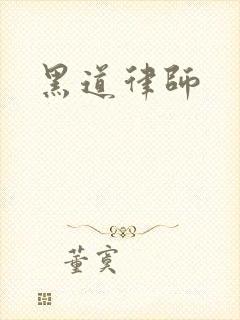 黑道律師
董寞